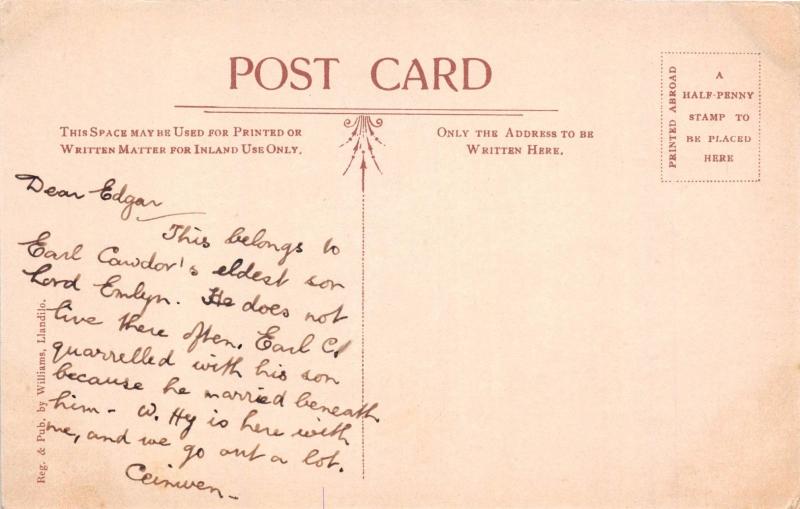 POST CARD
THIS SPACE MAY BE USED FOR PRINTED OR
WRITTEN MATTER FOR INLAND USE ONLY.
ONLY THE ADDRESS TO BE
WRITTEN HERE.
PRINTED ABROAD
A
HALF-PENNY
STAMP TO
BE PLACED
HERE
Dear Edgar
This belongs to
Earl Cawdor's eldest son
Lord Emlyn. He does not
live there often. Earl C.
quarrelled with his son
because he married beneath
him - W. Hy is here with
me, and we go out a lot.
Ceinwen -
Reg. & Pub. by Williams, Llandilo.